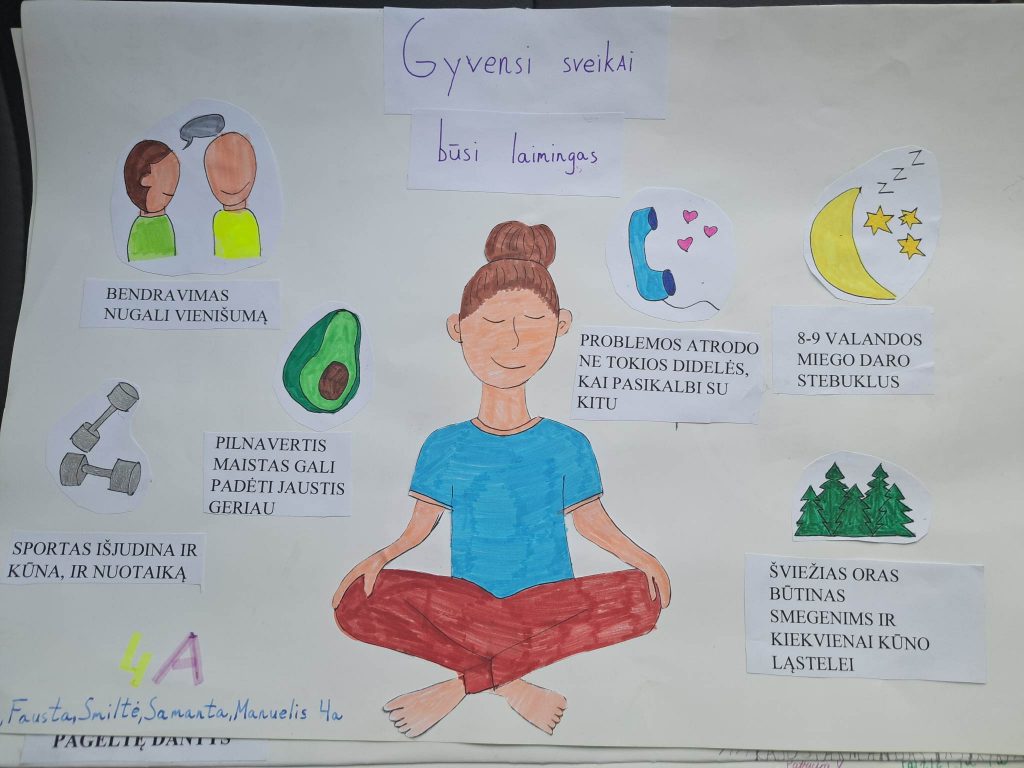 Gyvensi sveikai
būsi laimingas
z z z z
BENDRAVIMAS
NUGALI VIENIŠUMĄ
PROBLEMOS ATRODO
NE TOKIOS DIDELĖS,
KAI PASIKALBI SU
KITU
8-9 VALANDOS
MIEGO DARO
STEBUKLUS
PILNAVERTIS
MAISTAS GALI
PADĖTI JAUSTIS
GERIAU
SPORTAS IŠJUDINA IR
KŪNA, IR NUOTAIKĄ
ŠVIEŽIAS ORAS
BŪTINAS
SMEGENIMS IR
KIEKVIENAI KŪNO
LĄSTELEI
4A
, Fausta, Smiltė, Samanta, Manuelis 4a
PAGELTĘ DANTYS